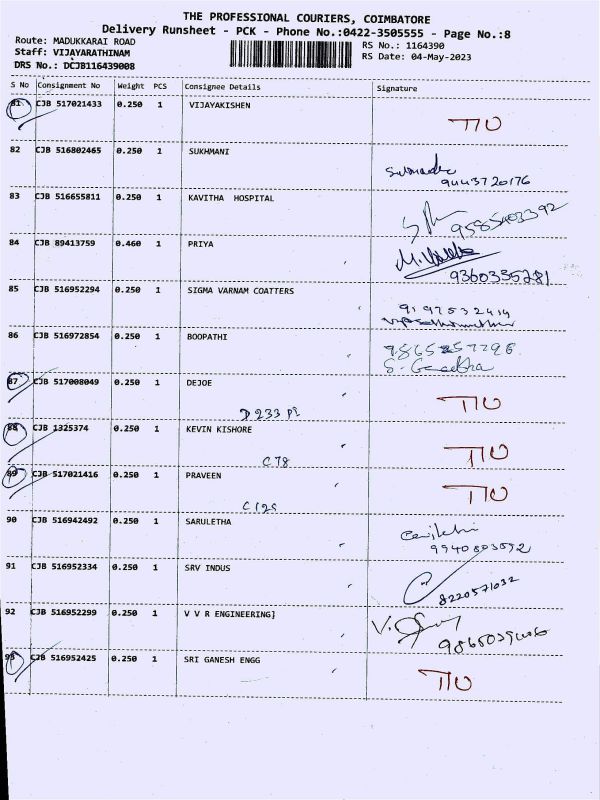 THE PROFESSIONAL COURIERS, COIMBATORE
Delivery Runsheet - PCK - Phone No.:0422-3505555 - Page No.:8
Route: MADUKKARAI ROAD
RS No.: 1164390
Staff: VIJAYARATHINAM
RS Date: 04-May-2023
DRS No.: DCJB116439008
S No Consignment No Weight PCS Consignee Details Signature
81 CJB 517021433 0.250 1 VIJAYAKISHEN
82 CJB 516802465 0.250 1 SUKHMANI
9443720176
83 CJB 516655811 0.250 1 KAVITHA HOSPITAL
9585403392
84 CJB 89413759 0.460 1 PRIYA
9360335281
85 CJB 516952294 0.250 1 SIGMA VARNAM COATTERS
86 CJB 516972854 0.250 1 BOOPATHI
87 CJB 517008049 0.250 1 DEJOE
D 233
88 CJB 1325374 0.250 1 KEVIN KISHORE
C 78
89 CJB 517021416 0.250 1 PRAVEEN
90 CJB 516942492 0.250 1 SARULETHA
91 CJB 516952334 0.250 1 SRV INDUS
8220571032
92 CJB 516952299 0.250 1 V V R ENGINEERING]
93 CJB 516952425 0.250 1 SRI GANESH ENGG